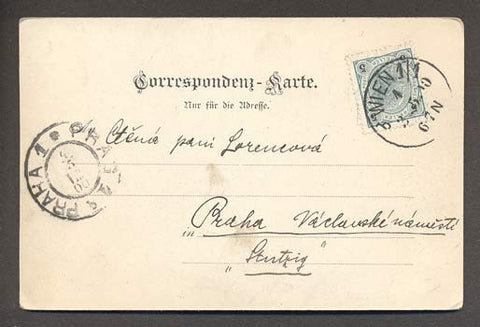 Correspondenz-Karte.
Nur für die Adresse.
WIEN 1/1
6-7N
PRAHA 1 PRAG 1
Ctěná paní Lorencová
Praha Václavské náměstí